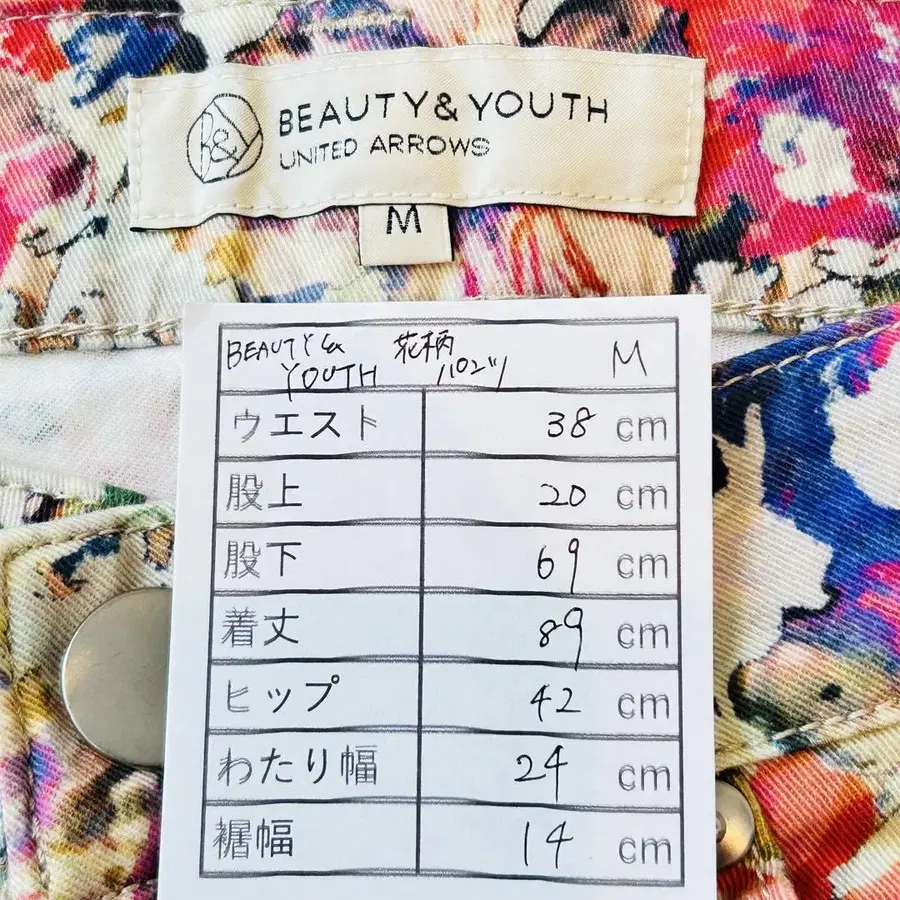 B&Y
BEAUTY & YOUTH
UNITED ARROWS
M
BEAUTY & 花柄 M
YOUTH パンツ
ウエスト 38 cm
股上 20 cm
股下 69 cm
着丈 89 cm
ヒップ 42 cm
わたり幅 24 cm
裾幅 14 cm